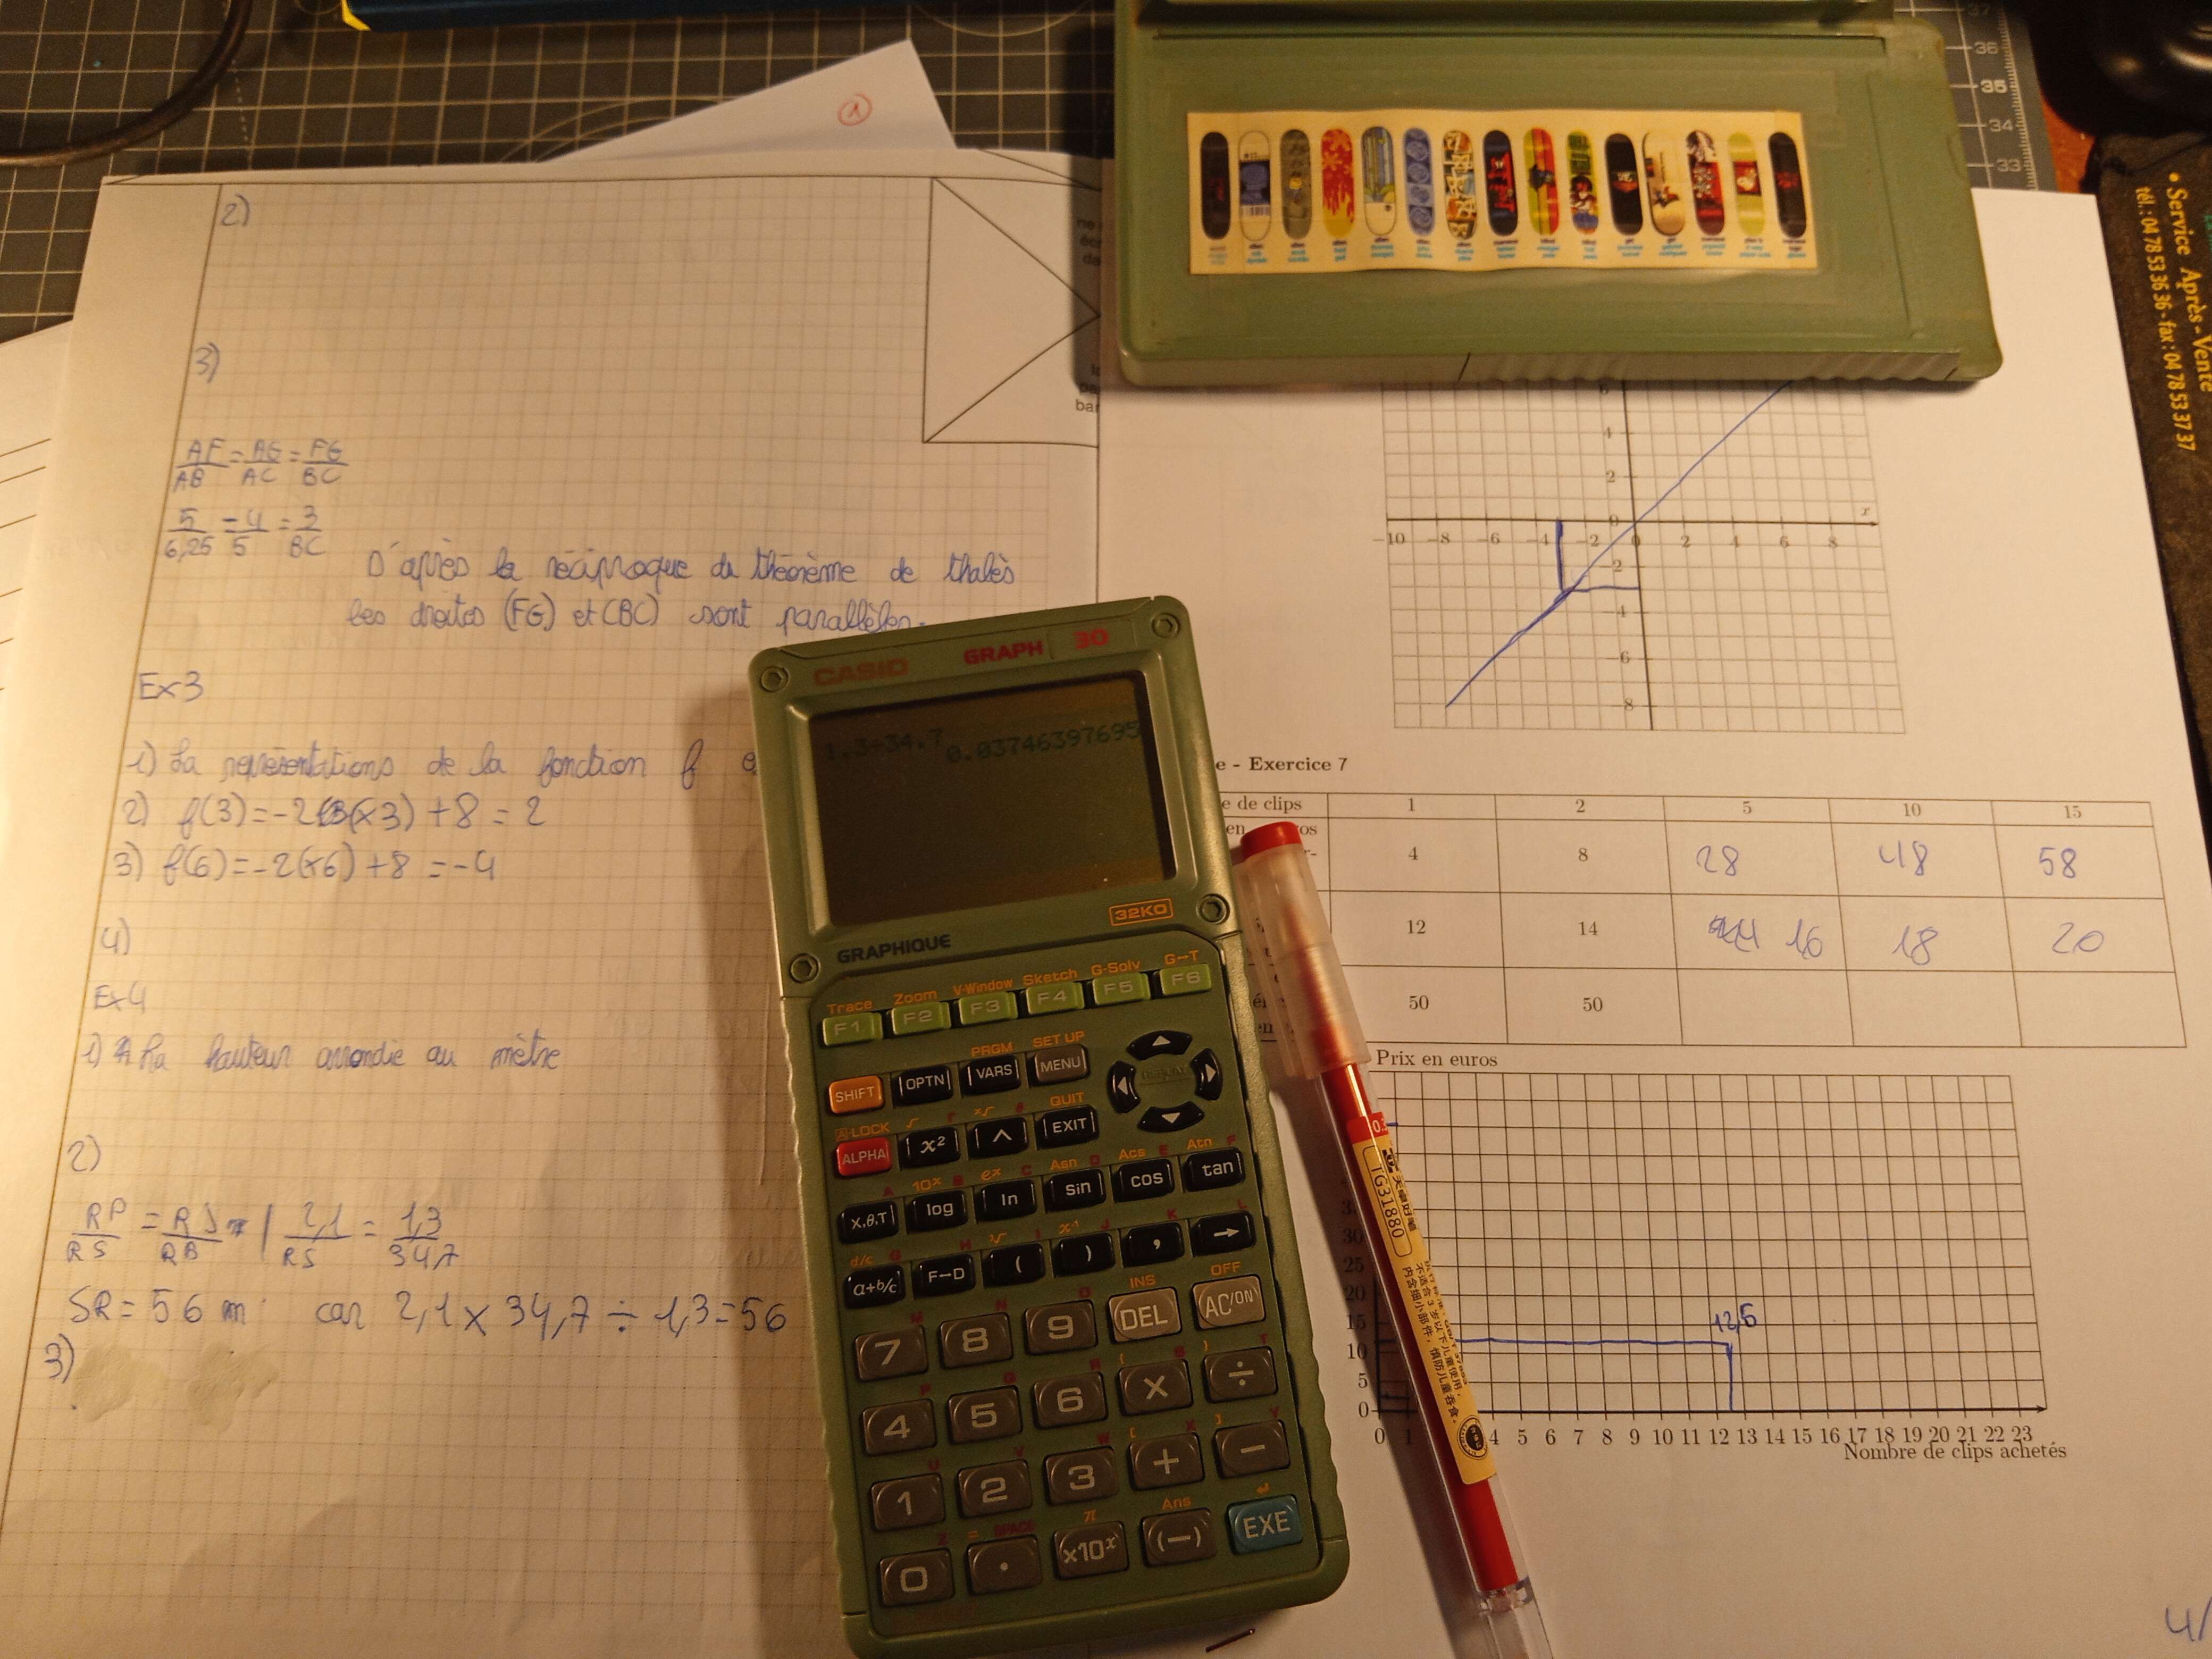 1
2)
3)
AF/AB = AG/AC = FG/BC
5/6,25 = 4/5 = 3/BC
D'après la réciproque du théorème de thalès
les droites (FG) et (BC) sont parallèles.
Ex3
1) La représentations de la fonction f
2) f(3)=-2(×3) +8 = 2
3) f(6)=-2(×6) +8 = -4
4)
Ex4
1) La hauteur arrondie au mètre
2)
RP/RS = RJ/RB
2,1/RS = 1,3/34,7
SR = 56 m car 2,1 × 34,7 ÷ 1,3 = 56
3)
CASIO GRAPH 30
1.3÷34.7
0.03746397695
32KO
GRAPHIQUE
Trace Zoom V-Window Sketch G-Solv G↔T
F1 F2 F3 F4 F5 F6
PRGM SET UP
SHIFT OPTN VARS MENU
A-LOCK QUIT
ALPHA x² ^ EXIT
10ˣ eˣ Asn Acs Atn
X,θ,T log ln sin cos tan
d/c
a+b/c F↔D ( ) , →
INS OFF
7 8 9 DEL AC/ON
4 5 6 × ÷
1 2 3 + −
SPACE π Ans
0 . ×10ˣ (−) EXE
4
2
0
x
−10 −8 −6 −4 0 2 4 6 8
−2
−4
−6
−8
e - Exercice 7
e de clips 1 2 5 10 15
4 8 28 48 58
12 14 16 18 20
50 50
Prix en euros
30
25
20
15
10
5
0
12,5
0 1 4 5 6 7 8 9 10 11 12 13 14 15 16 17 18 19 20 21 22 23
Nombre de clips achetés
TG31880
4/
36
35
34
33
• Service Après-Vente
tél : 04 78 53 36 36 - fax : 04 78 53 37 37